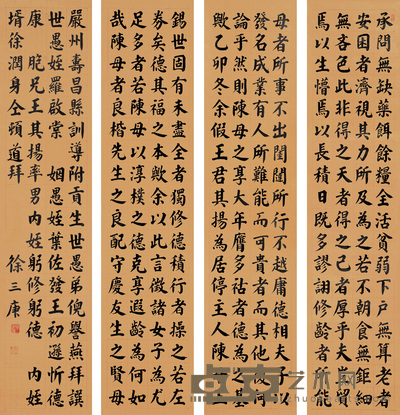 承問無缺藥餌餘糧全活貧弱下戶無算老者
安困者濟視其力所及為之若不朝食無鉅細
無吝色此非得之天者得之己者厚乎夫貞
焉以生焉以長積日既多謬詡修齡者能
母者所事不出閨闥所行不越庸德相夫子
發名成業有人所難能而可貴者而其他復何
論乎然則陳母之享大年膺多祜者德為之
歟乙卯冬余假王君其揚為居停主人陳
錫世固有未盡全者獨修德積行者操之若左
券矣德其福之本歟余以此言諸女子為尤
足多者若陳母以淳樸之德克享遐齡為何如
哉陳母者良楷先生之良配守慶友生之賢母
嚴州壽昌縣訓導附貢生世愚弟倪譽燕拜譔
世愚姪羅啟棠 姻愚姪葉佐發王初遜忻德
康 晚兄王其揚率男內姪躬修躬德 內姪
壻徐潤身仝頓道拜
徐三庚